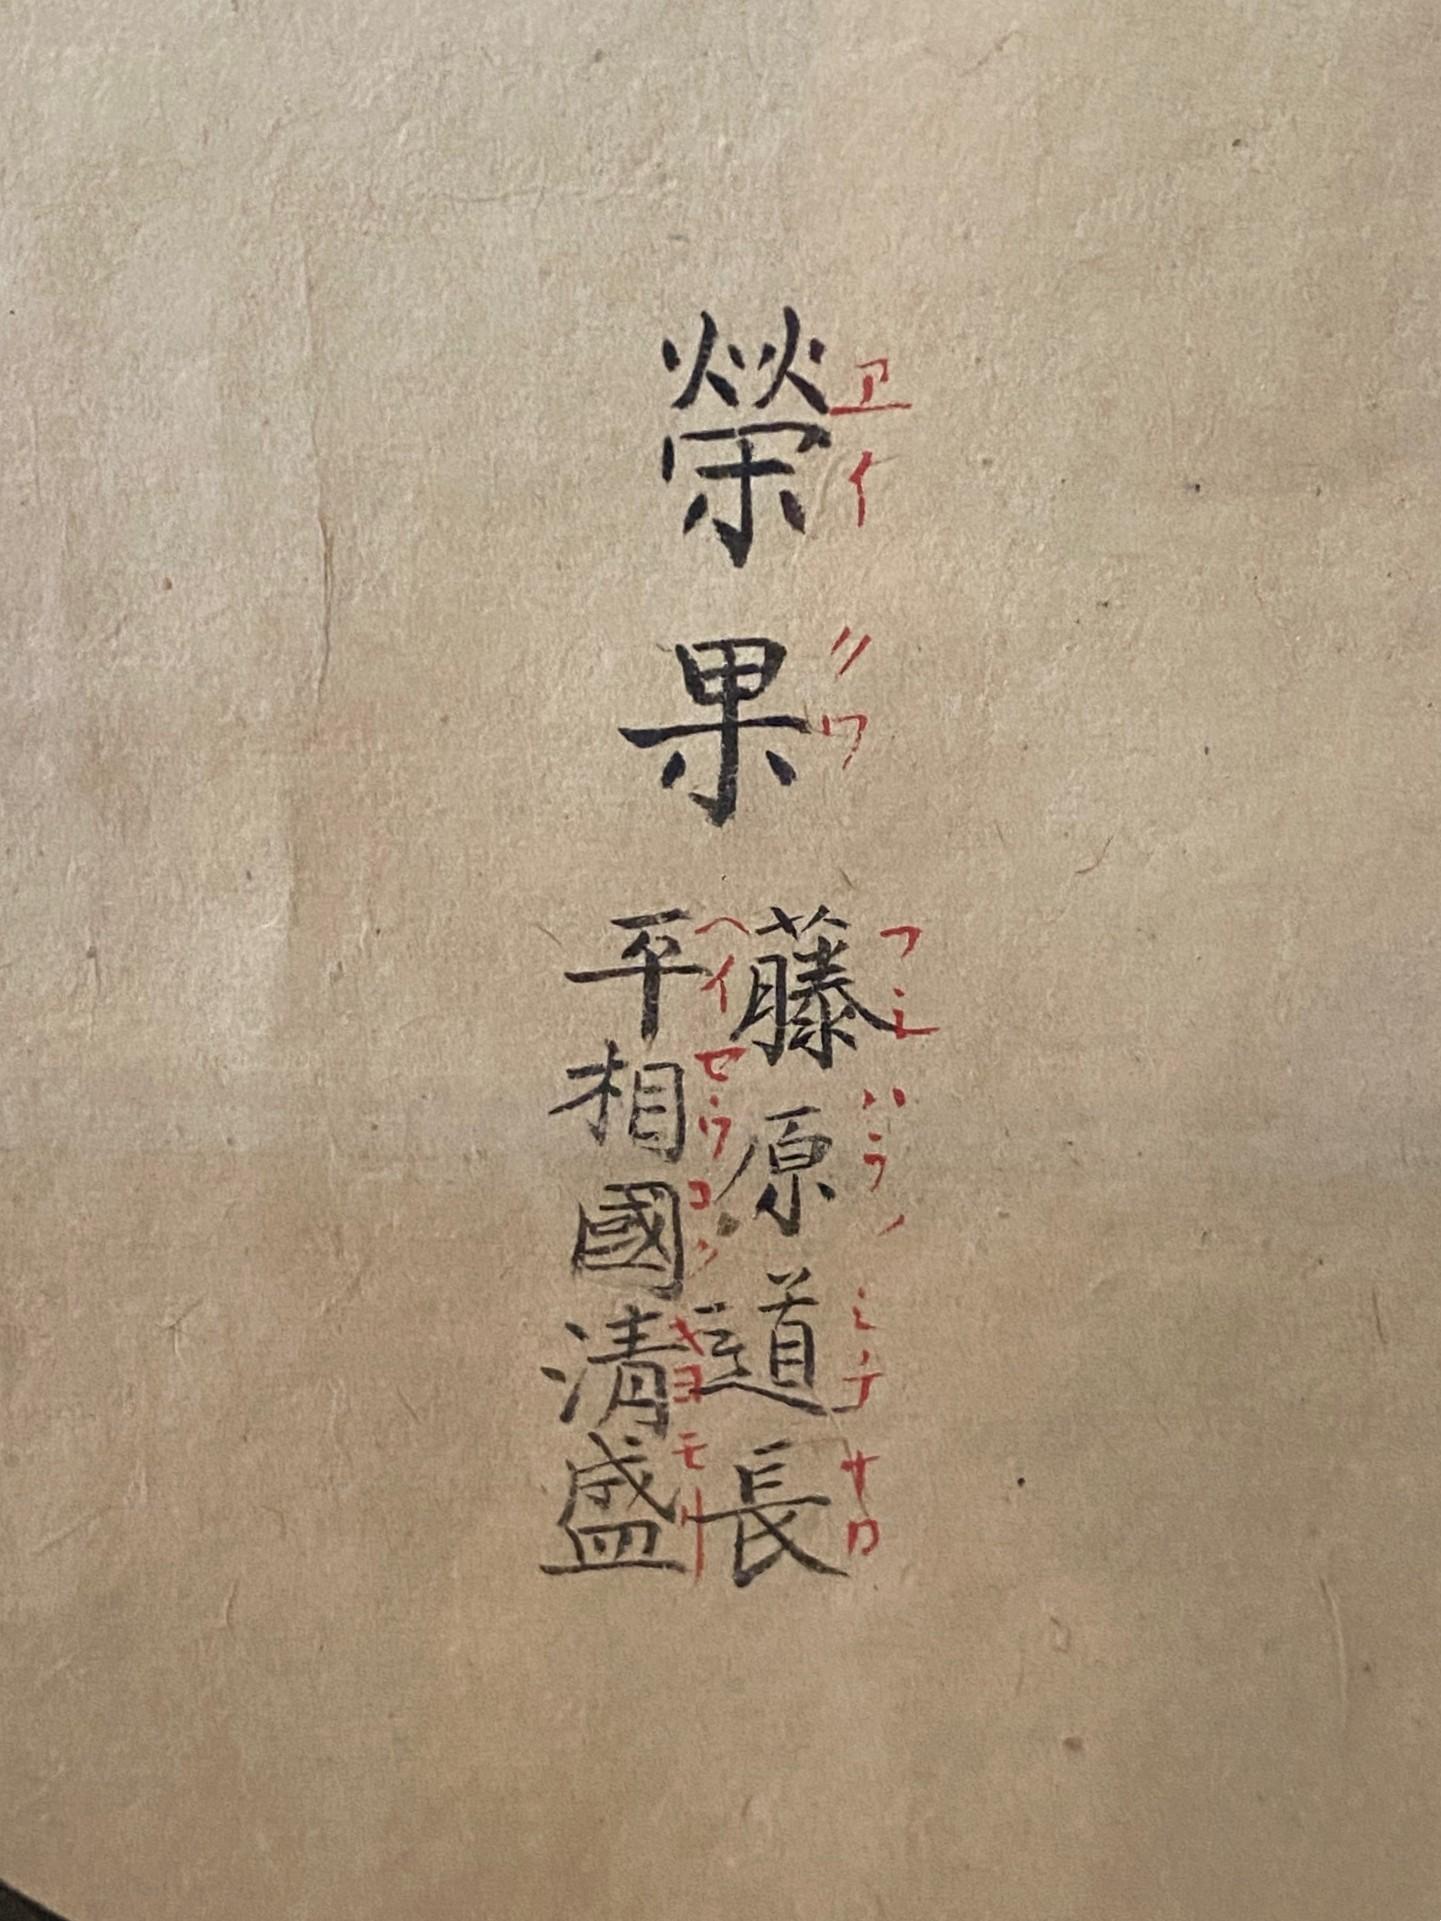 榮果
エイクワ
藤原道長
フヂハラノミチナガ
平相國清盛
ヘイセウコクキヨモリ